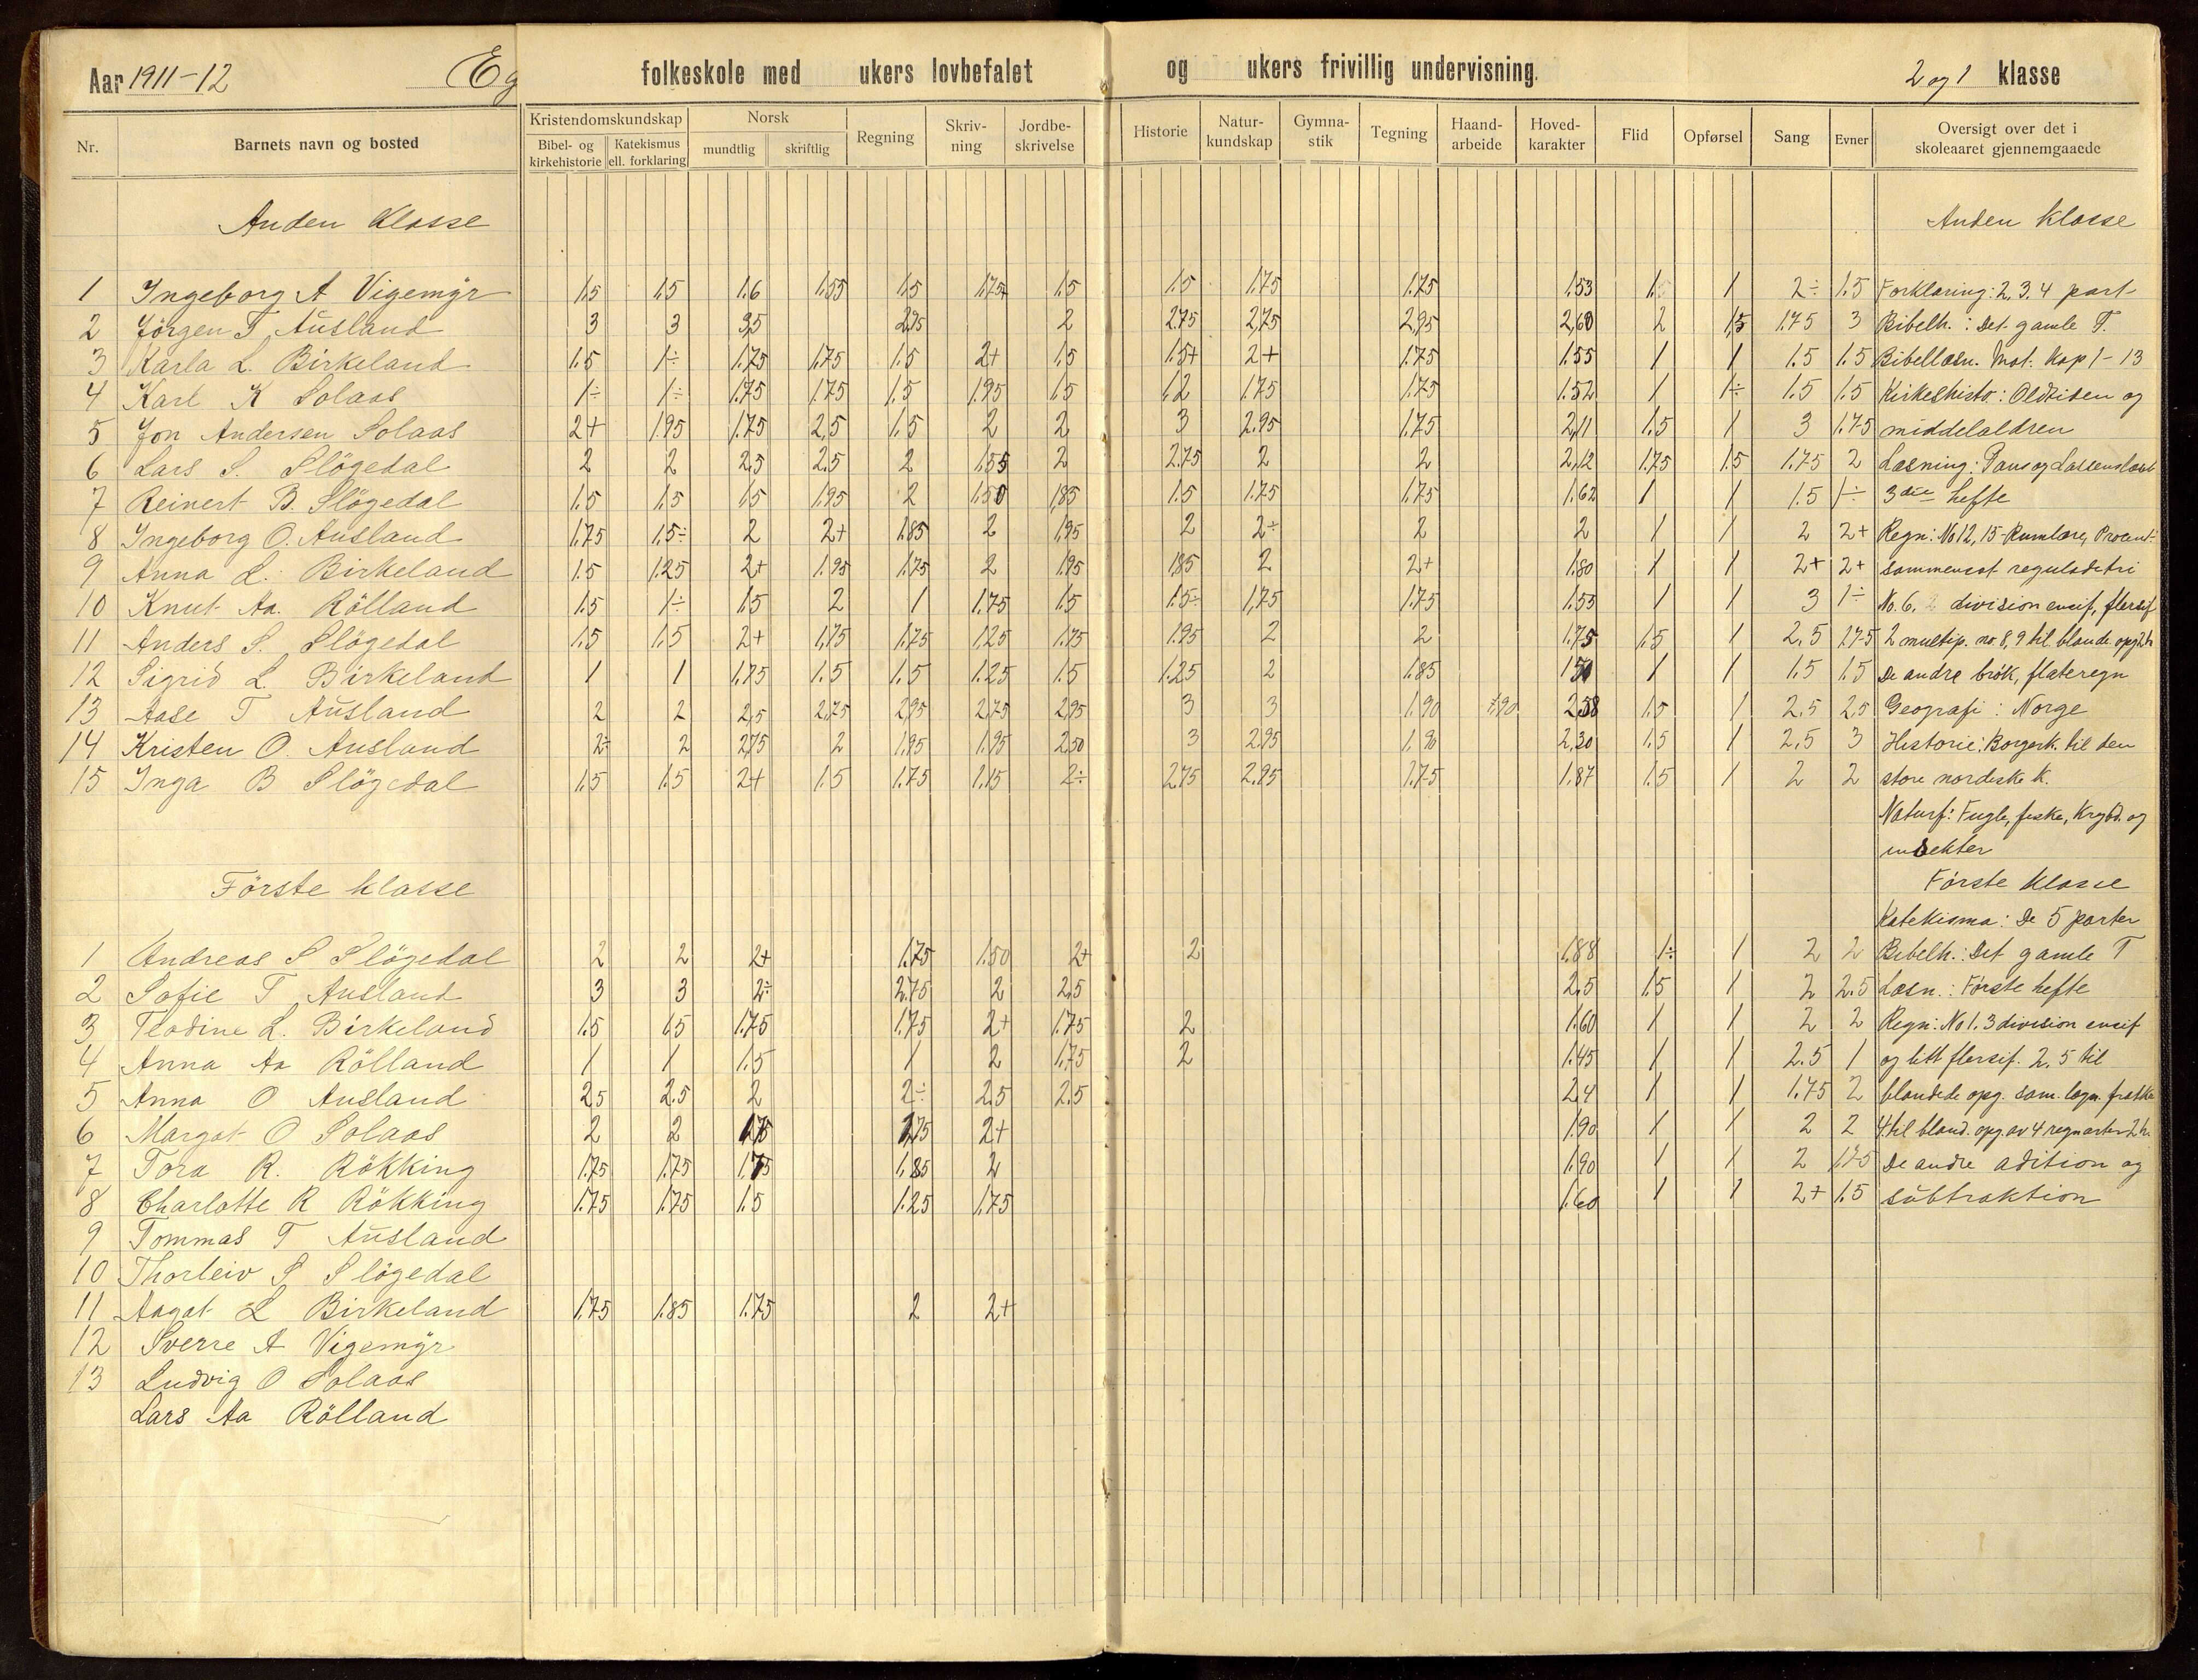 Aar 1911-12 Eg folkeskole med ukers lovbefalet og ukers frivillig undervisning. 2 og 1 klasse
Nr. Barnets navn og bosted Kristendomskundskap Bibel- og kirkehistorie Katekismus ell. forklaring Norsk mundtlig skriftlig Regning Skriv-ning Jordbe-skrivelse Historie Natur-kundskap Gymna-stik Tegning Haand-arbeide Hoved-karakter Flid Opførsel Sang Evner Oversigt over det i skoleaaret gjennemgaaede
Anden Klasse Anden klasse
1 Ingeborg A Vigemyr 1.5 1.5 1.6 1.55 1.5 1.75+ 1.5 1.5 1.75 1.75 1.53 1.5 1 2÷ 1.5 Forklaring: 2, 3, 4 part
2 Jörgen T Ausland 3 3 3,5 2,95 2 2.75 2,75 2,95 2,60 2 1,5 1.75 3 Bibelh.: Det gamle T.
3 Karla L. Birkeland 1.5 1÷ 1.75 1.75 1.5 2+ 1.5 1.5+ 2+ 1.75 1.55 1 1 1.5 1.5 Bibellæsn. Mat. Kap 1-13
4 Karl K Solaas 1÷ 1÷ 1.75 1.75 1.5 1.95 1.5 1,2 1.75 1.75 1.52 1 1÷ 1.5 1.5 Kirkehisto: Oldtiden og
5 Jon Andersen Solaas 2+ 1.95 1.75 2,5 1.5 2 2 3 2.95 1.75 2,11 1.5 1 3 1.75 middelaldren
6 Lars S. Slögedal 2 2 2,5 2.5 2 1.55 2 2.75 2 2 2,12 1.75 1.5 1.75 2 Læsning: Paus og Lassens læseb
7 Reinert B. Slögedal 1.5 1.5 1.5 1.95 2 1.50 1,85 1.5 1.75 1.75 1.62 1 1 1.5 1÷ 3die hefte
8 Ingeborg O. Ausland 1.75 1.5÷ 2 2+ 1.85 2 1.95 2 2÷ 2 2 1 1 2 2+ Regn: No 12, 15 Rumlære, Procent
9 Anna L. Birkeland 1.5 1.25 2+ 1.95 1.75 2 1.95 1.85 2 2+ 1.80 1 1 2+ 2+ sammensat reguladetri
10 Knut Aa. Rölland 1.5 1÷ 1.5 2 1 1.75 1.5 1.5÷ 1,75 1.75 1.55 1 1 3 1÷ No. 6. division ensif, flersif
11 Anders S. Slögedal 1.5 1.5 2+ 1.75 1.75 1.25 1.75 1.95 2 2 1.75 1.5 1 2.5 2.75 2 multip. no. 8, 9 til blande. opg 2h
12 Sigrid L. Birkeland 1 1 1.75 1.5 1.5 1.25 1.5 1.25 2 1.85 1.50 1 1 1.5 1.5 De andre brök, flateregn
13 Aase T Ausland 2 2 2,5 2.75 2,95 2.75 2,95 3 3 1.90 1,90 2,58 1.5 1 2.5 2.5 Geografi: Norge
14 Kristen O. Ausland 2÷ 2 2.75 2 1.95 1.95 2,50 3 2,95 1.90 2,30 1.5 1 2.5 3 Historie: Borgerk. til den
15 Inga B Slögedal 1.5 1.5 2+ 1.5 1.75 1.15 2÷ 2.75 2.95 1.75 1.87 1.5 1 2 2 store nordiske k.
Naturf: Fugle, fiske, Krybd. og
insekter
Förste klasse Förste klasse
Katekisma: De 5 parter
1 Andreas S Slögedal 2 2 2+ 1.75 1.50 2+ 2 1.88 1÷ 1 2 2 Bibelh.: Det gamle T
2 Sofie T Ausland 3 3 2÷ 2.75 2 2,5 2.5 1.5 1 2 2.5 Læsn.: Förste hefte
3 Teodine L. Birkeland 1.5 1.5 1.75 1.75 2+ 1.75 2 1.60 1 1 2 2 Regn: No 1. 3 division ensif
4 Anna Aa Rölland 1 1 1.5 1 2 1.75 2 1.45 1 1 2.5 1 og litt flersif. 2, 5 til
5 Anna O Ausland 2.5 2.5 2 2÷ 2.5 2.5 2.4 1 1 1.75 2 blandede opg. sam. lagn. frætke
6 Margot O Solaas 2 2 1.75 1.75 2+ 1.90 1 1 2 2 4 til bland. opg. av 4 regnarter 2h.
7 Tora R. Rökking 1.75 1.75 1.75 1.85 2 1.90 1 1 2 1.75 De andre adition og
8 Charlotte R Rökking 1.75 1.75 1.5 1.25 1.75 1.60 1 1 2+ 1.5 subtraktion
9 Tommas T Ausland
10 Thorleiv S Slögedal
11 Aagot L Birkeland 1.75 1.85 1.75 2 2+
12 Sverre A Vigemyr
13 Ludvig O Solaas
Lars Aa Rölland